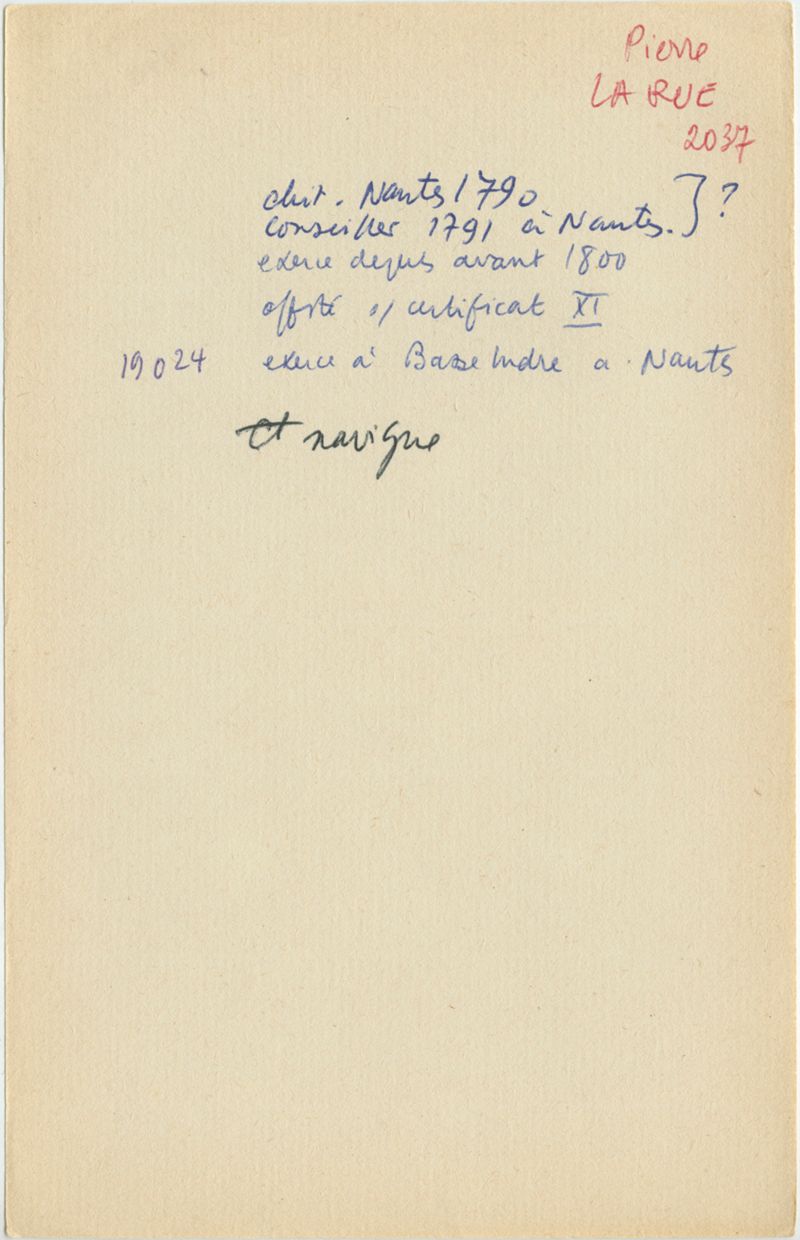 Pierre
LA RUE
2037
chir. Nantes 1790
conseiller 1791 à Nantes. } ?
exerce depuis avant 1800
offsté s/ certificat XI
19024 exerce à Basse Indre a Nantes
et navigue